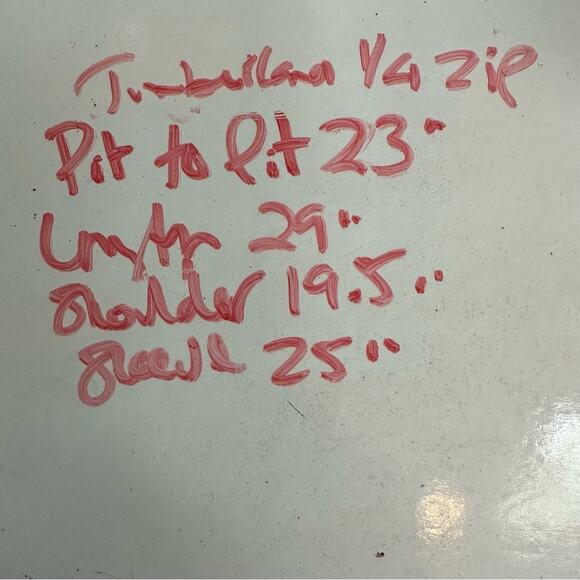 Timberland 1/4 Zip
Pit to Pit 23"
Length 29"
Shoulder 19.5"
Sleeve 25"